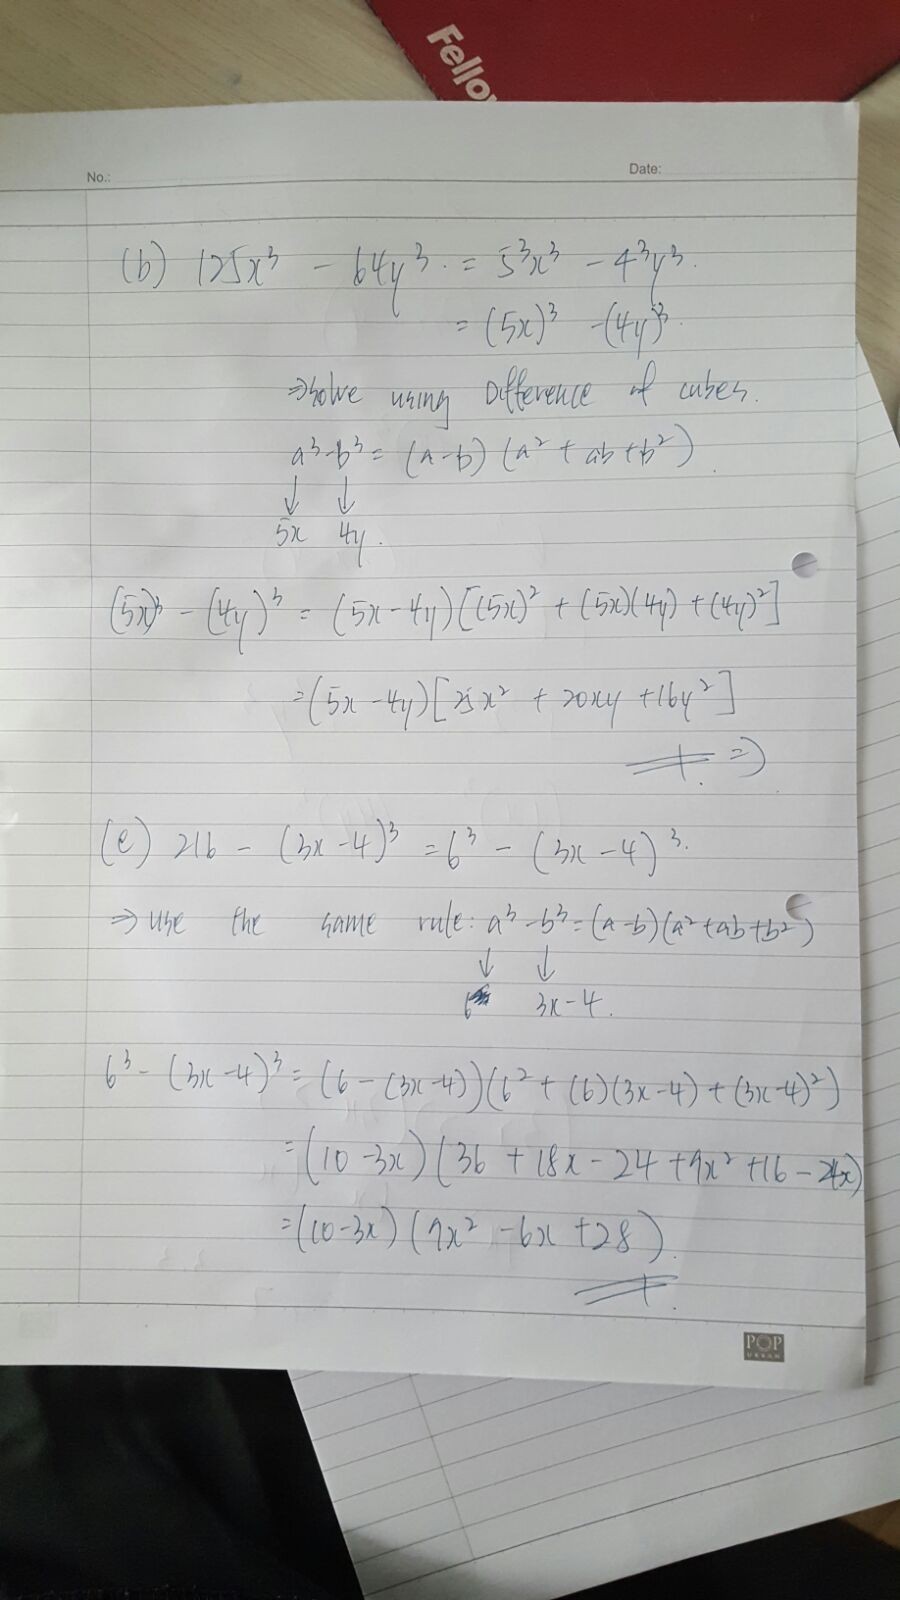 Fello
No.:
Date:
(b) 125x³ - 64y³. = 5³x³ - 4³y³.
= (5x)³ - (4y)³.
⇒ solve using Difference of cubes.
a³ - b³ = (a-b) (a² + ab + b²).
↓ ↓
5x 4y.
(5x)³ - (4y)³ = (5x - 4y) [(5x)² + (5x)(4y) + (4y)²]
= (5x - 4y) [25x² + 20xy + 16y²]
=)
(e) 216 - (3x - 4)³ = 6³ - (3x - 4)³.
⇒ use the same rule: a³ - b³ = (a-b)(a² + ab + b²)
↓ ↓
6 3x - 4.
6³ - (3x - 4)³ = (6 - (3x - 4)) (6² + (6)(3x - 4) + (3x - 4)²)
= (10 - 3x) (36 + 18x - 24 + 9x² + 16 - 24x)
= (10 - 3x) (9x² - 6x + 28).
POP
URBAN